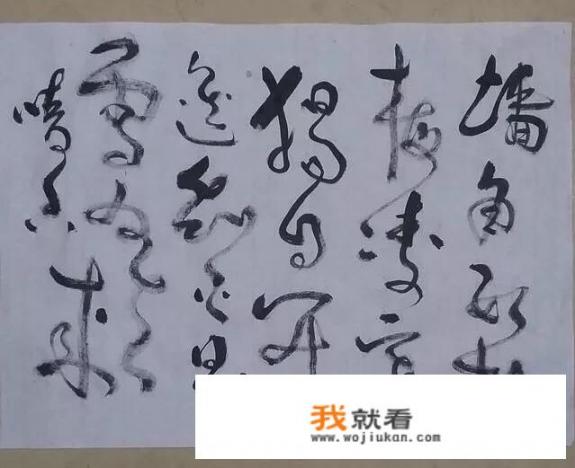 墙角数枝
梅凌寒
独自开
遥知不是
雪为有
暗香来
我就看
www.wojiukan.com